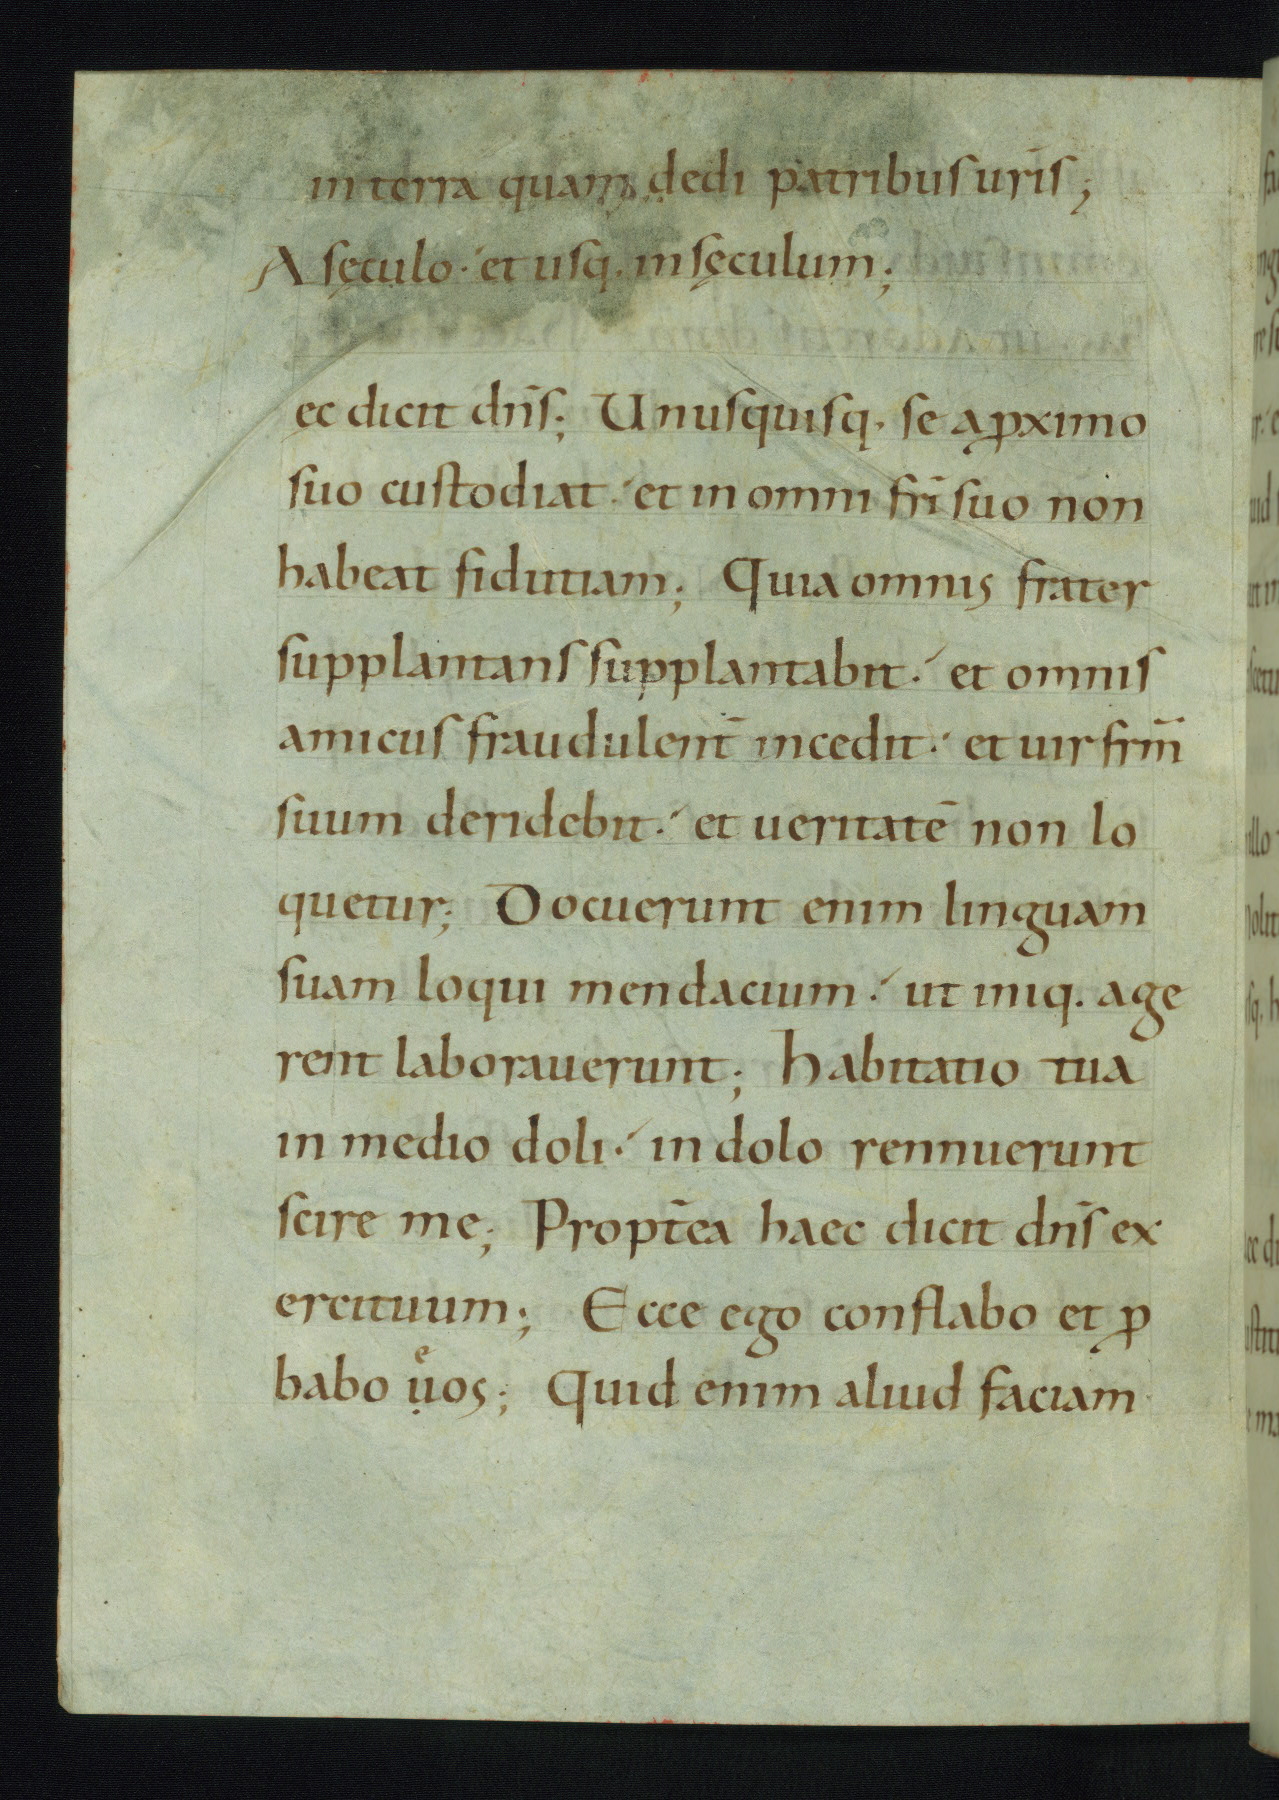 in terra quam dedi patribus uris̄;
A sęculo· et usq. in sęculum;
ec dicit dn̄s; Unusquisq. se a ꝓximo
suo custodiat· et in omni fr̄i suo non
habeat fidutiam; Quia omnis frater
supplantans supplantabit· et omnis
amicus fraudulent̄ incedit· et uir frm̄
suum deridebit· et ueritatē non lo
quetur; Docuerunt enim linguam
suam loqui mendacium· ut iniq. age
rent laborauerunt; Habitatio tua
in medio doli· in dolo rennuerunt
scire me; Propt̄ea haec dicit dn̄s ex
ercituum; Ecce ego conflabo et ꝓ
babo ụͤos; Quid enim aliud faciam